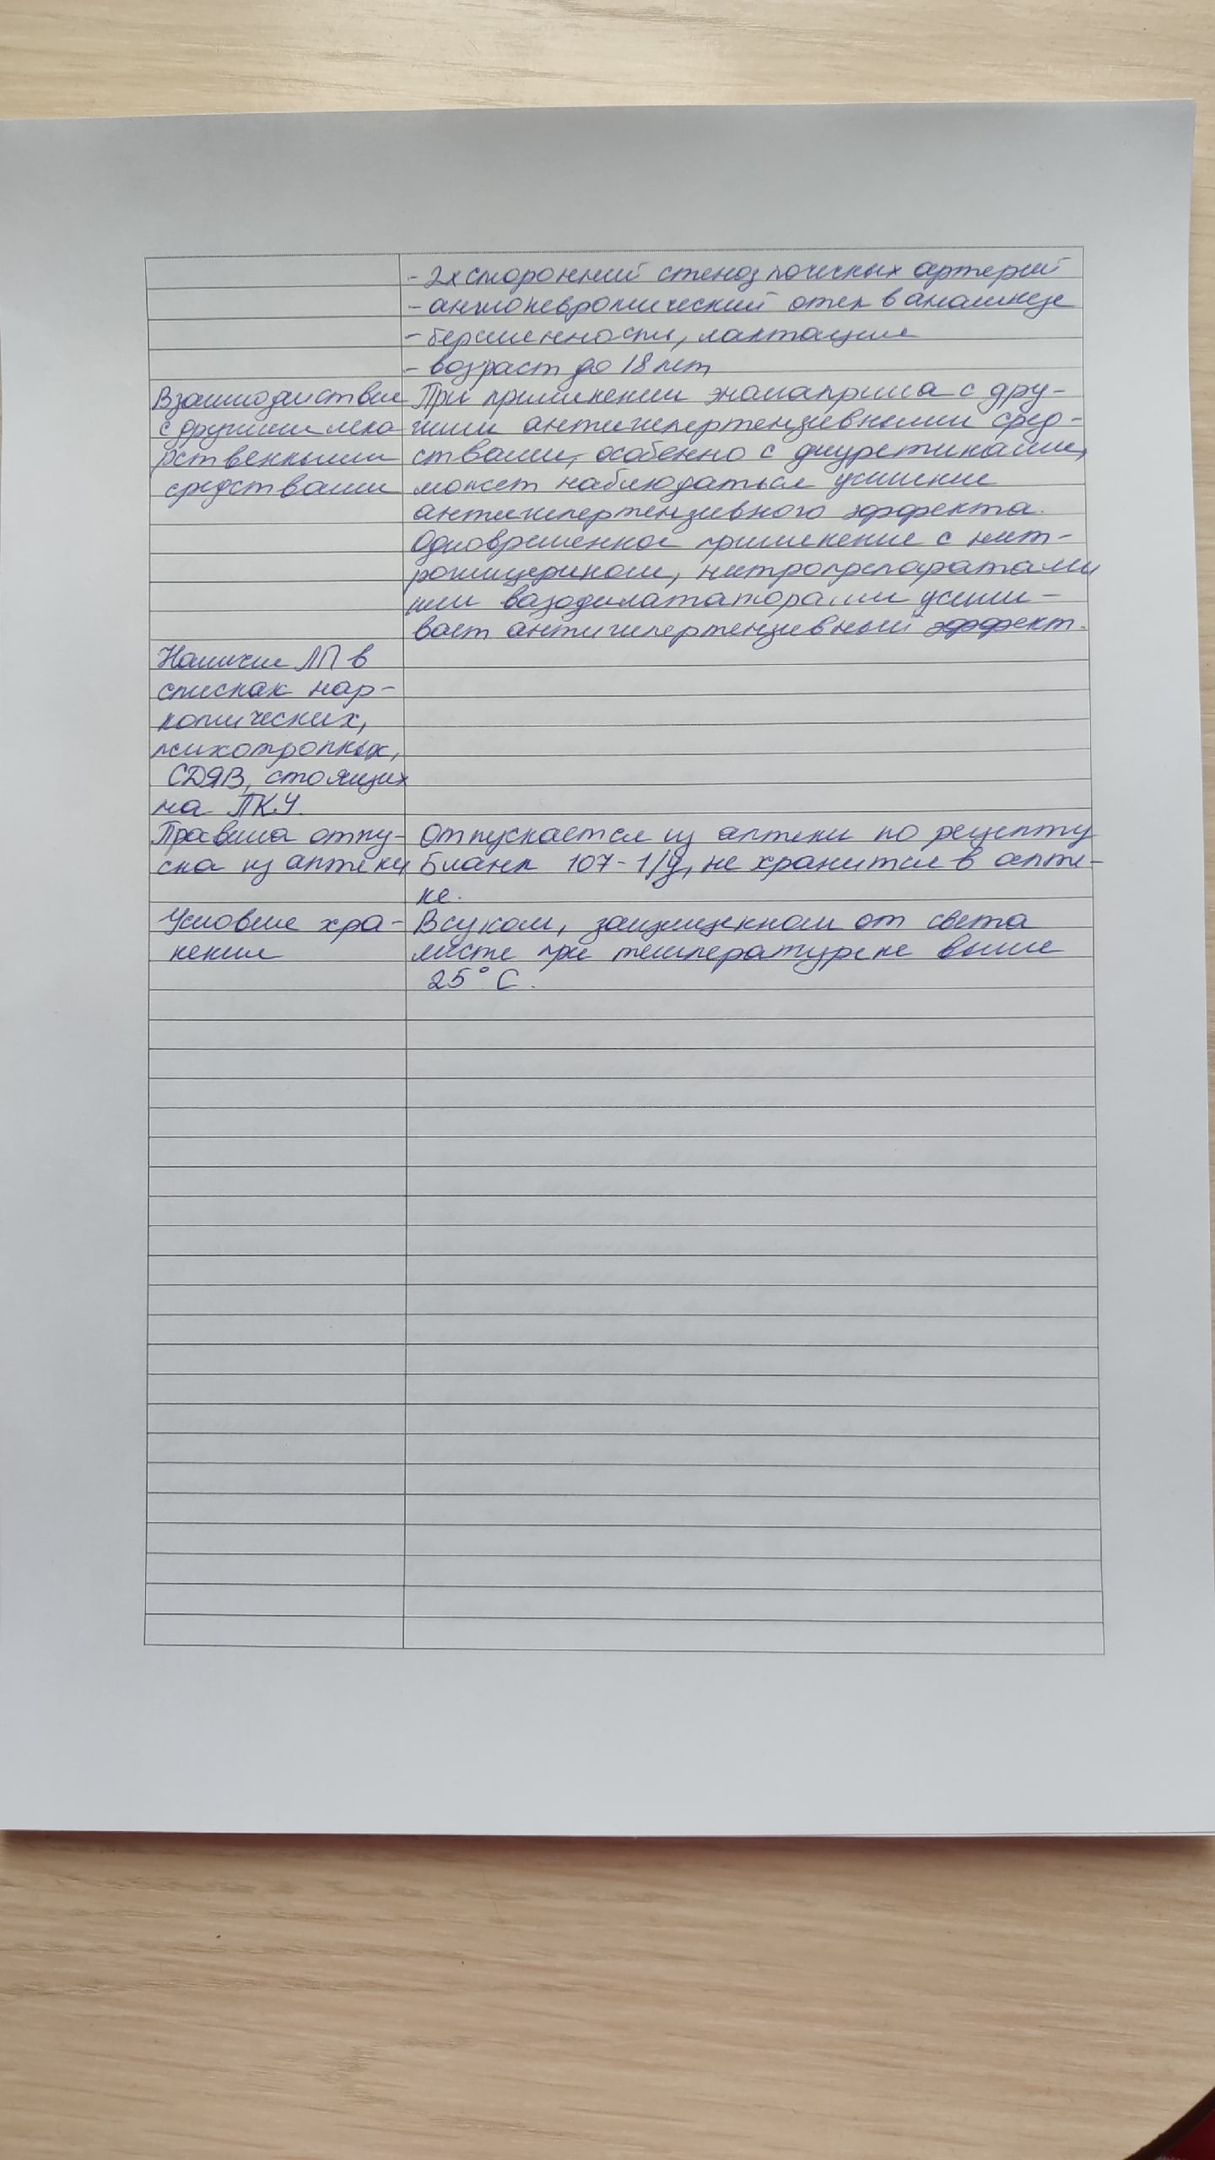 - 2х сторонний стеноз почечных артерий
- ангионевротический отек в анамнезе
- беременность, лактация
- возраст до 18 лет
Взаимодействие При применении эналаприла с дру-
с другими лека гими антигипертензивными сред-
рственными ствами, особенно с диуретиками,
средствами может наблюдаться усиление
антигипертензивного эффекта.
Одновременное применение с нит-
роглицерином, нитропрепаратами
или вазодилататорами усили-
вает антигипертензивный эффект.
Наличие ЛП в
списках нар-
котических,
психотропных,
СДЯВ, стоящих
на ПКУ.
Правила отпу- Отпускается из аптеки по рецепту
ска из аптеки Бланк 107-1/у, не хранится в апте-
ке.
Условие хра- В сухом, защищенном от света
нения месте при температуре не выше
25°С.